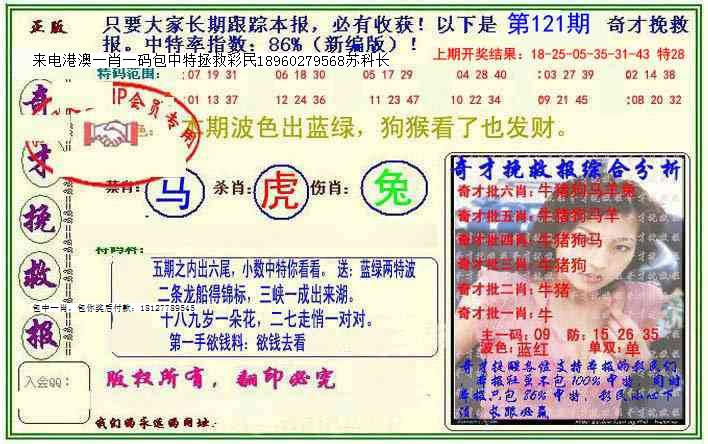 正版
只要大家长期跟踪本报，必有收获！以下是 第121期 奇才挽救
报。中特率指数：86%（新编版）！
上期开奖结果：18-25-05-35-31-43 特28
来电港澳一肖一码包中特拯救彩民18960279568苏科长
特码范围：
:07 19 31 06 18 30 05 17 29 04 28 40 :03 27 39 :02 14 38
:01 13 25 12 24 36 11 23 47 10 22 34 09 21 45 :08 20 32
IP会员专用
本期波色出蓝绿，狗猴看了也发财。
奇才挽救报
禁肖：马 杀肖：虎 伤肖：兔
五期之内出六尾，小数中特你看看。送：蓝绿两特波
二条龙船得锦标，三峡一成出来湖。
十八九岁一朵花，二七走悄一对对。
第一手欲钱料：欲钱去看
包中一肖，包你奖后付款：18127789545
入会QQ：
版权所有，翻印必究
我们的永远的网址：
奇才挽救报综合分析
奇才批六肖：牛猪狗马羊兔
奇才批五肖：牛猪狗马羊
奇才批四肖：牛猪狗马
奇才批三肖：牛猪狗
奇才批二肖：牛猪
奇才批一肖：牛
主一码：09 防：15 26 35
波色：蓝红 单双：单
奇才挽救各位支持本报的彩民们
，本报往虽不包100%中特，同时
本报只包86%中特，彩民小心下
注，长跟必赢